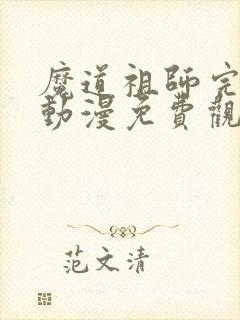 魔道祖師完
動漫免費觀
范文清